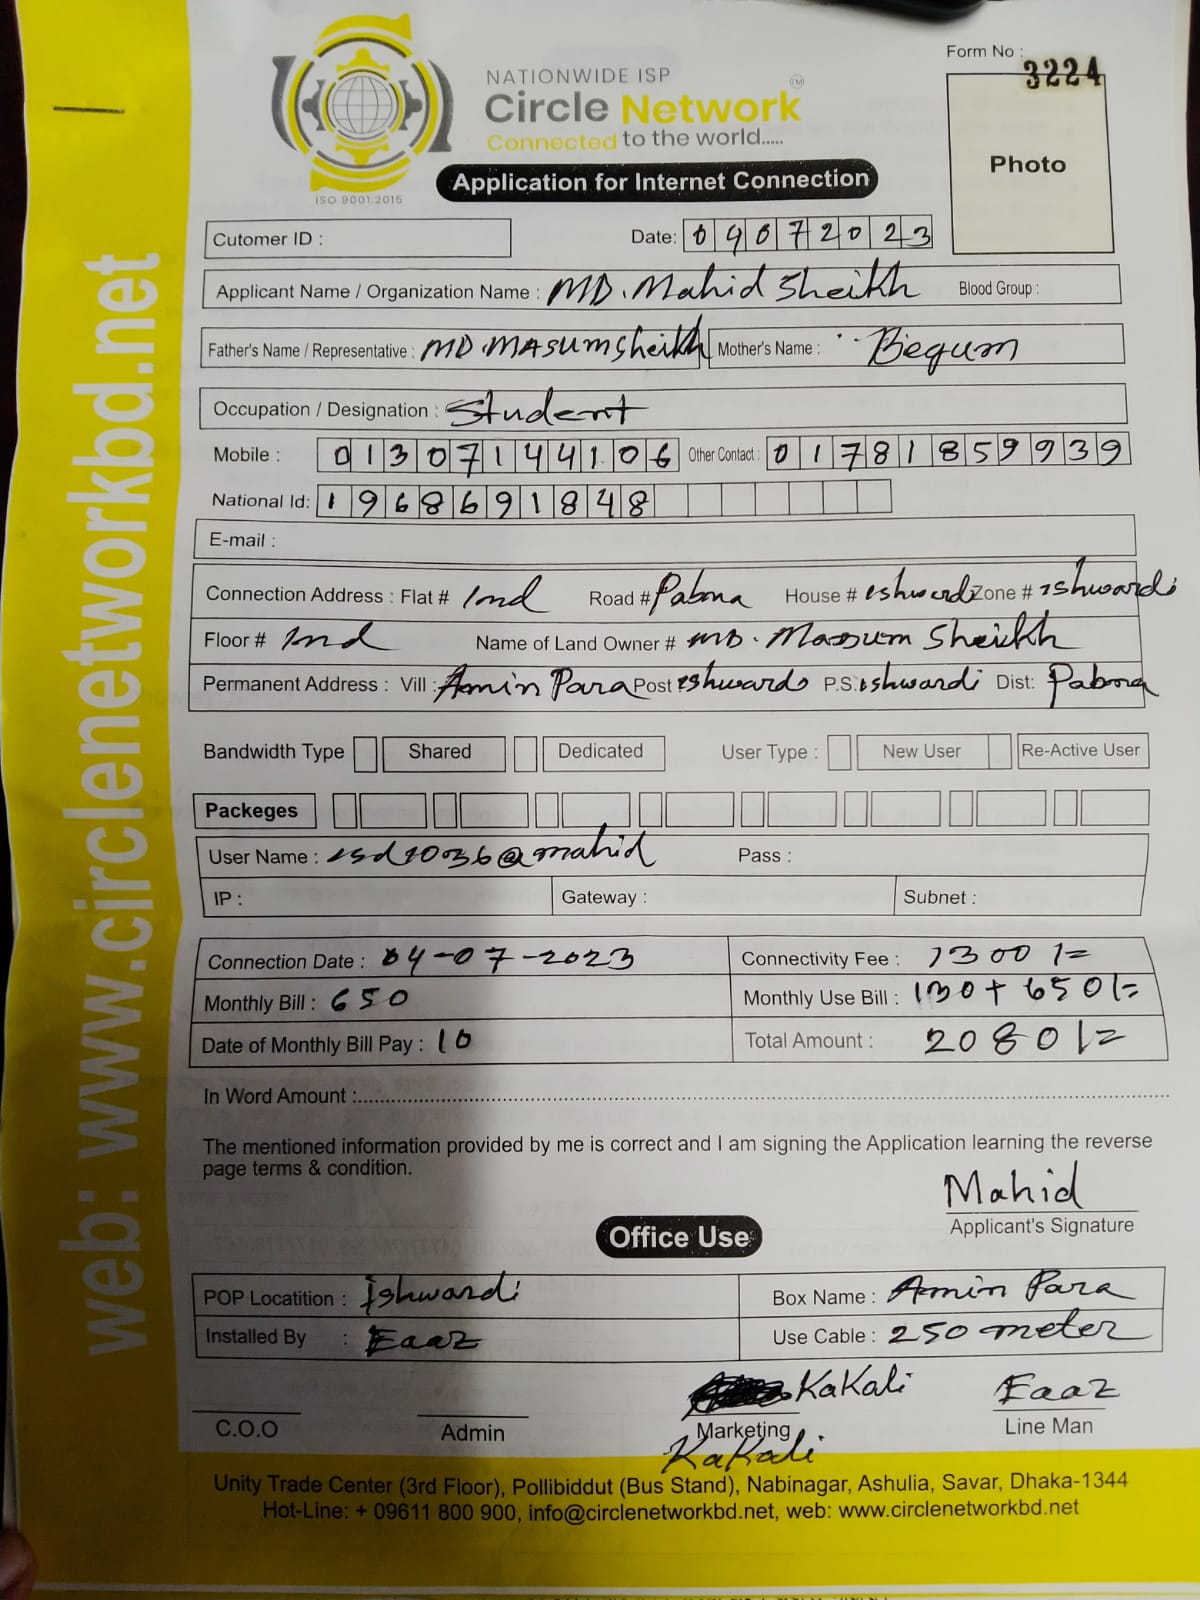 Form No :
3224
NATIONWIDE ISP
Circle Network TM
Connected to the world.....
ISO 9001:2015
Application for Internet Connection
Photo
Cutomer ID :
Date: 04072023
Applicant Name / Organization Name : MD. Mahid Sheikh Blood Group :
Father's Name / Representative : MD. MASUM Sheikh Mother's Name : Begum
Occupation / Designation : Student
Mobile : 01307144106 Other Contact : 01781859939
National Id: 1968691848
E-mail :
Connection Address : Flat # 2nd Road # Pabna House # ishwardi Zone # ishwardi
Floor # 2nd Name of Land Owner # MD. Massum Sheikh
Permanent Address : Vill : Amin Para Post ishwardi P.S: ishwardi Dist: Pabna
Bandwidth Type Shared Dedicated User Type : New User Re-Active User
Packeges
User Name : @mahid Pass :
IP : Gateway : Subnet :
Connection Date : 04-07-2023 Connectivity Fee : 1300/=
Monthly Bill : 650 Monthly Use Bill : 130+650/=
Date of Monthly Bill Pay : 10 Total Amount : 2080/=
In Word Amount :
The mentioned information provided by me is correct and I am signing the Application learning the reverse
page terms & condition.
Mahid
Applicant's Signature
Office Use
POP Locatition : Ishwardi Box Name : Amin Para
Installed By : Eaaz Use Cable : 250 meter
KaKali Eaaz
C.O.O Admin Marketing Line Man
KaKali
Unity Trade Center (3rd Floor), Pollibiddut (Bus Stand), Nabinagar, Ashulia, Savar, Dhaka-1344
Hot-Line: + 09611 800 900, info@circlenetworkbd.net, web: www.circlenetworkbd.net
web: www.circlenetworkbd.net